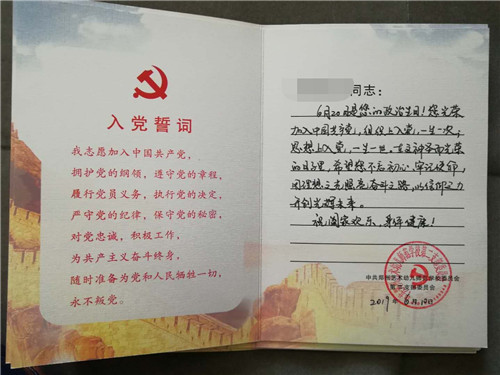 入党誓词
我志愿加入中国共产党，
拥护党的纲领，遵守党的章程，
履行党员义务，执行党的决定，
严守党的纪律，保守党的秘密，
对党忠诚，积极工作，
为共产主义奋斗终身，
随时准备为党和人民牺牲一切，
永不叛党。
同志：
6月20日是您的政治生日！您光荣
加入中国共产党，组织上入党，一生一次，
思想上入党，一生一世，
的日子里，希望您不忘初心，牢记使命，
用理想之光照亮奋斗之路，以信仰之力
开创美好未来。
祝：阖家欢乐，身体健康！
2019年6月10日